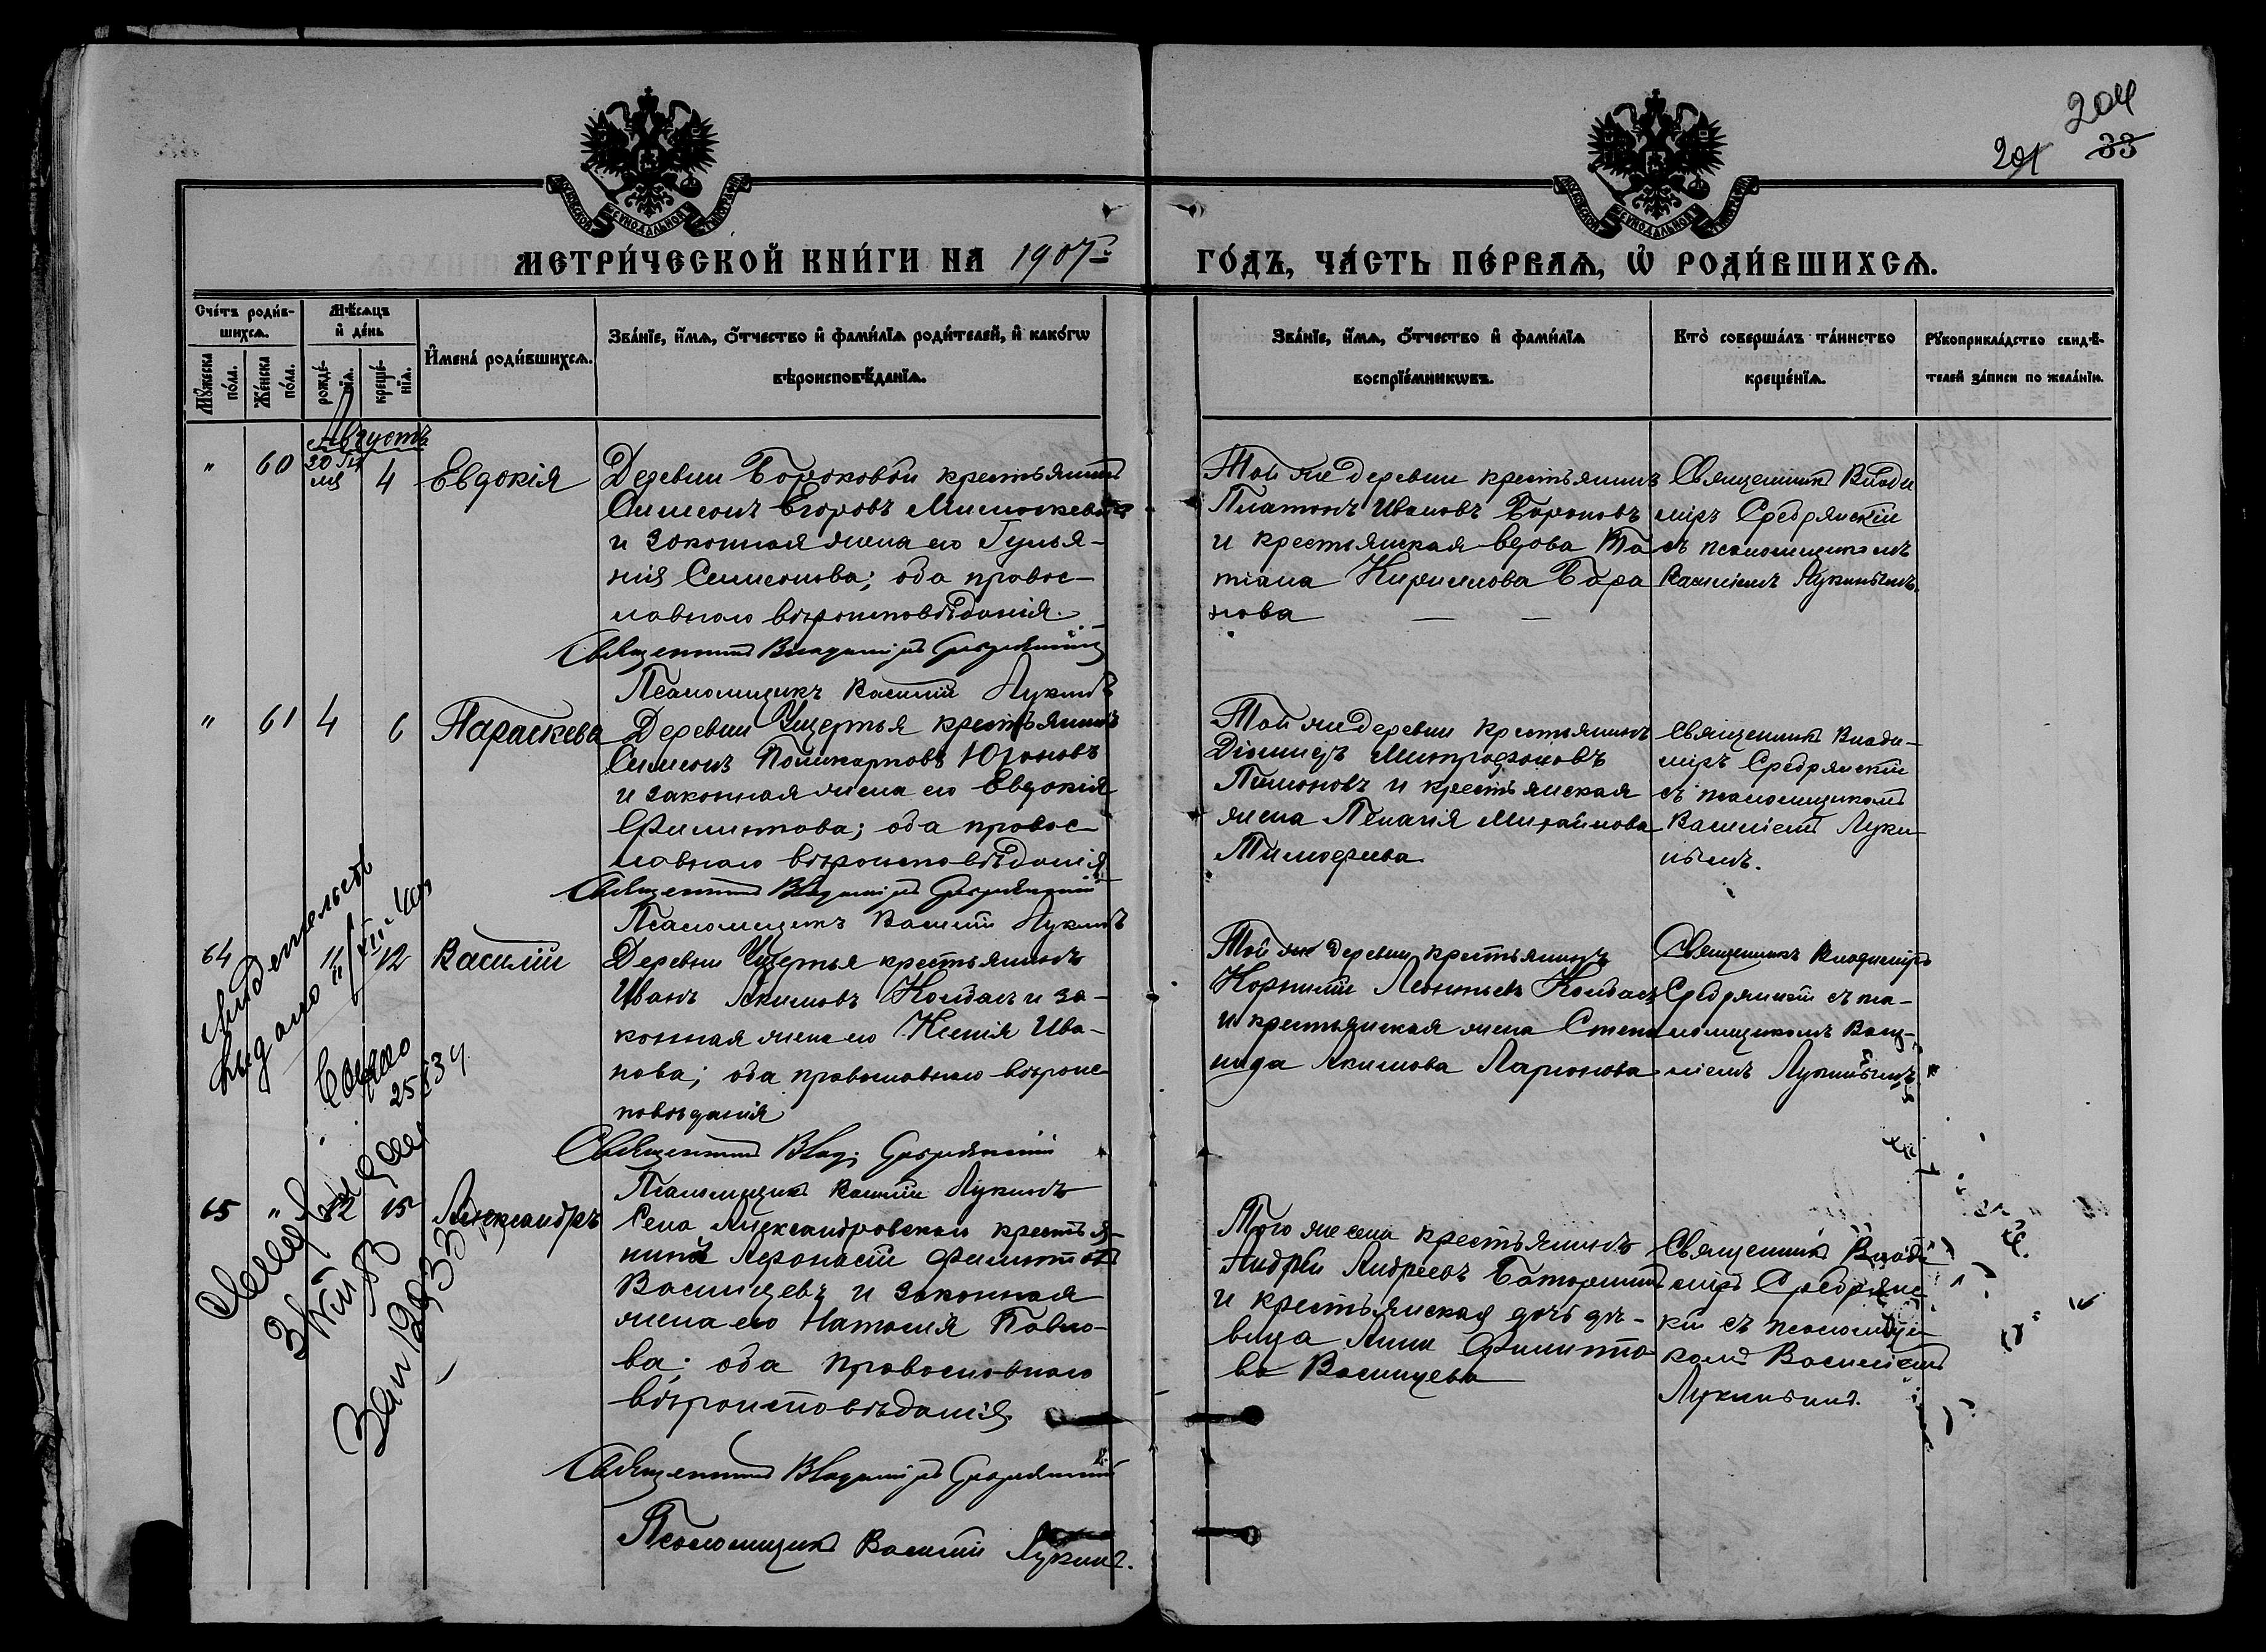 204
201 33
МОСКОВСКОЙ СѴНОДАЛЬНОЙ ТИПОГРАФІИ
МОСКОВСКОЙ СѴНОДАЛЬНОЙ ТИПОГРАФІИ
МЕТРИ́ЧЕСКОЙ КНИ́ГИ НА 1907й
ГО́ДЪ, ЧА́СТЬ ПЕ́РВАѦ, Ѽ РОДИ́ВШИХСѦ.
Сче́тъ роди́в-
шихсѧ.
Мѣ́сѧцъ
и҆ де́нь
Мꙋ́жеска
по́ла.
Же́нска
по́ла.
рожде́-
нїѧ.
креще́-
нїѧ.
И҆мена̀ роди́вшихсѧ.
Зва́нїе, и҆́мѧ, ѻ҆́тчество и҆ фами́лїѧ роди́телей, и҆ како́гѡ
вѣроисповѣ́данїѧ.
Зва́нїе, и҆́мѧ, ѻ҆́тчество и҆ фами́лїѧ
воспрїе́мникѡвъ.
Кто̀ соверша́лъ та́инство
креще́нїѧ.
Рꙋкоприкла́дство свидѣ́-
телей за́писи по жела́нїю.
Августъ
" 60 4 Евдокія
Деревни крестьянинъ
Симеонъ Егоровъ
и законная жена его Гулья-
нія Семенова; оба правос-
лавнаго вѣроисповѣданія.
Священникъ Владиміръ Сребрянскій
Псаломщикъ Василій Лукинъ
Той же деревни крестьянинъ
Платонъ Ивановъ Бороновъ
и крестьянская вдова Та
тіана Кирилова Боро
нова
Священникъ Влади
міръ Сребрянскій
съ псаломщикомъ
Василіемъ Лукинымъ.
" 61 4 6 Параскева
Деревни Ущерпья крестьянинъ
Симеонъ Поликарповъ
и законная жена его Евдокія
Филиппова; оба правос-
лавнаго вѣроисповѣданія
Священникъ Владиміръ Сребрянскій
Псаломщикъ Василій Лукинъ
Той же деревни крестьянинъ
Діомидъ Митрофановъ
и крестьянская
жена Пелагія Михайлова
Тимофеева.
Священникъ Влади-
міръ Сребрянскій
съ псаломщикомъ
Василіемъ Луки-
нымъ.
64 11 12 Василій
Деревни Ущерпья крестьянинъ
Иванъ Акимовъ Колбасъ и за-
конная жена его Ксенія Ива-
нова; оба православнаго вѣроис-
повѣданія
Священникъ Влад. Сребрянскій
Псаломщикъ Василій Лукинъ
Той же деревни крестьянинъ
Корнилій Леонтьевъ Колбасъ
и крестьянская жена Степа
нида Акимова Ларионова
Священникъ Владиміръ
Сребрянскій съ пса-
ломщикомъ Васи-
ліемъ Лукинымъ
65 " 12 15 Александръ
Села Александровскаго крестья-
нинъ Афанасій Филипповъ
Васищевъ и законная
жена его Наталія Павло-
ва; оба православнаго
вѣроисповѣданія
Священникъ Владиміръ Сребрянскій
Псаломщикъ Василій Лукинъ.
Того же села крестьянинъ
Андрей Андреевъ
и крестьянская дочь дѣ-
вица Анна Филиппо
ва Васищева
Священникъ Влади
міръ Сребрянс
кій съ псаломщи-
комъ Василіемъ
Лукинымъ.
Свидетельство
выдано